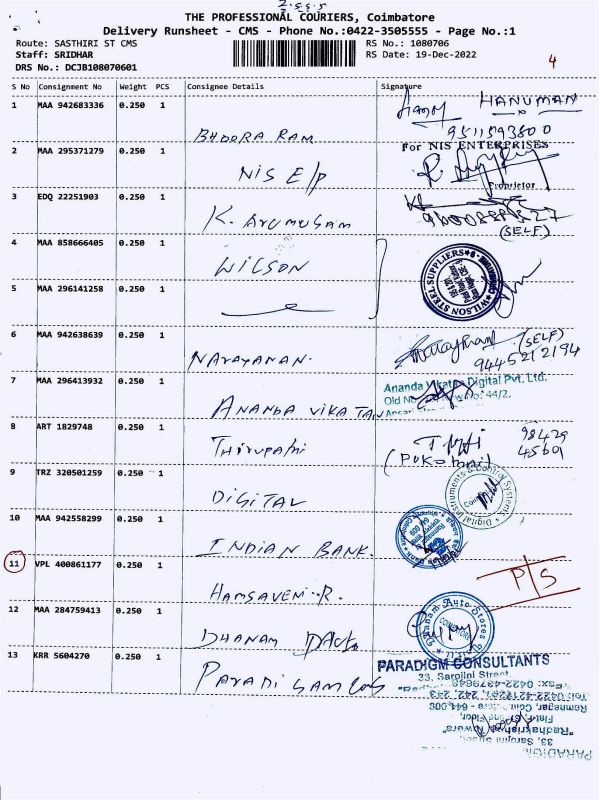 2.5.5.5
THE PROFESSIONAL COURIERS, Coimbatore
Delivery Runsheet - CMS - Phone No.:0422-3505555 - Page No.:1
Route: SASTHIRI ST CMS
RS No.: 1080706
Staff: SRIDHAR
RS Date: 19-Dec-2022
4
DRS No.: DCJB108070601
S No Consignment No Weight PCS Consignee Details Signature
1 MAA 942683336 0.250 1
HANUMAN
BHOORA RAM
9511593800
For NIS ENTERPRISES
2 MAA 295371279 0.250 1
NIS E/P
Proprietor
3 EDQ 22251903 0.250 1
K. ARUMUGAM
(SELF)
4 MAA 858666405 0.250 1
WILSON
WILSON STEEL SUPPLIERS
5 MAA 296141258 0.250 1
6 MAA 942638639 0.250 1
(SELF)
NARAYANAN.
9445212194
7 MAA 296413932 0.250 1
Ananda Vikatan Digital Pvt. Ltd.
Old No. 44/2.
ANANDA VIKATAN
8 ART 1829748 0.250 1
98429
THIRUPATHI
45609
9 TRZ 320501259 0.250 1
Digital Instruments & Control Systems
DIGITAL
10 MAA 942558299 0.250 1
INDIAN BANK.
11 VPL 400861177 0.250 1
P/S
HAMSAVENI.R.
12 MAA 284759413 0.250 1
Dhanam Auto Stores
DHANAM
13 KRR 5604270 0.250 1
PARADIGM CONSULTANTS
33, Sarojini Street,
Ramnagar, Coimbatore - 641 009
"Radhakrishna Nivas"
33, Sarojini Street,
PARADIGM